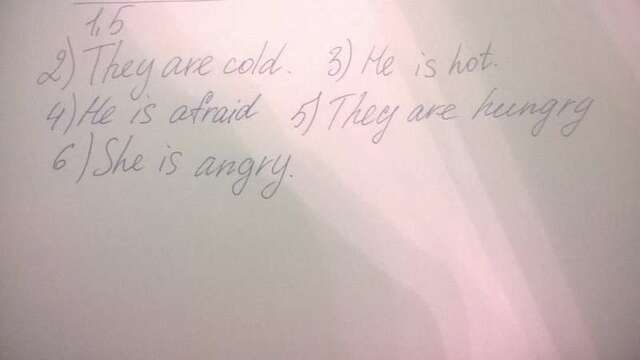 1,5
2) They are cold. 3) He is hot.
4) He is afraid 5) They are hungry
6) She is angry.